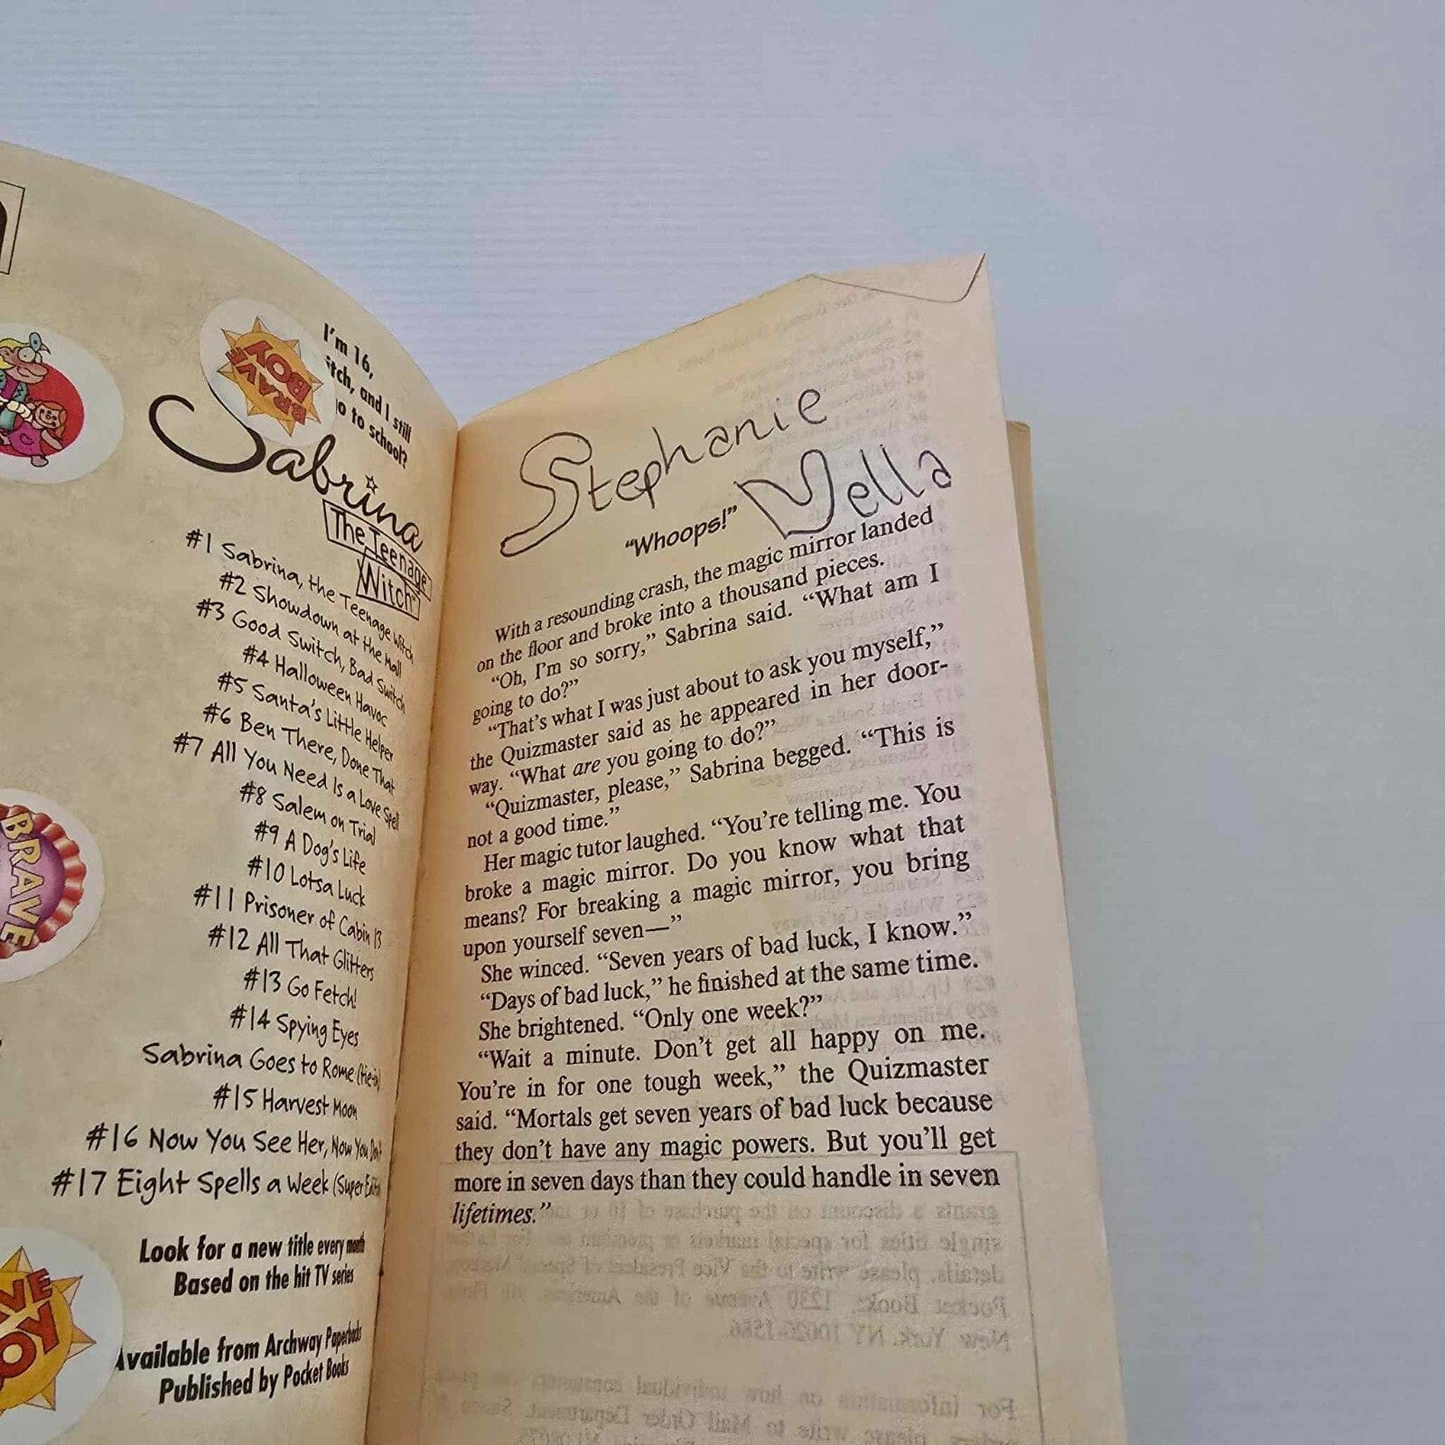 BRAVE
BOY
I'm 16,
and I still
to school?
Sabrina
The Teenage
Witch
#1 Sabrina, the Teenage Witch
#2 Showdown at the Mall
#3 Good Switch, Bad Switch
#4 Halloween Havoc
#5 Santa's Little Helper
#6 Ben There, Done That
#7 All You Need Is a Love Spell
#8 Salem on Trial
#9 A Dog's Life
#10 Lotsa Luck
#11 Prisoner of Cabin 13
#12 All That Glitters
#13 Go Fetch!
#14 Spying Eyes
Sabrina Goes to Rome (tie-in)
#15 Harvest Moon
#16 Now You See Her, Now You Don't
#17 Eight Spells a Week (Super Edition)
Look for a new title every month
Based on the hit TV series
Available from Archway Paperbacks
Published by Pocket Books
BRAVE
Stephanie
Vella
"Whoops!"
With a resounding crash, the magic mirror landed
on the floor and broke into a thousand pieces.
"Oh, I'm so sorry," Sabrina said. "What am I
going to do?"
"That's what I was just about to ask you myself,"
the Quizmaster said as he appeared in her door-
way. "What are you going to do?"
"Quizmaster, please," Sabrina begged. "This is
not a good time."
Her magic tutor laughed. "You're telling me. You
broke a magic mirror. Do you know what that
means? For breaking a magic mirror, you bring
upon yourself seven—"
She winced. "Seven years of bad luck, I know."
"Days of bad luck," he finished at the same time.
She brightened. "Only one week?"
"Wait a minute. Don't get all happy on me.
You're in for one tough week," the Quizmaster
said. "Mortals get seven years of bad luck because
they don't have any magic powers. But you'll get
more in seven days than they could handle in seven
lifetimes."